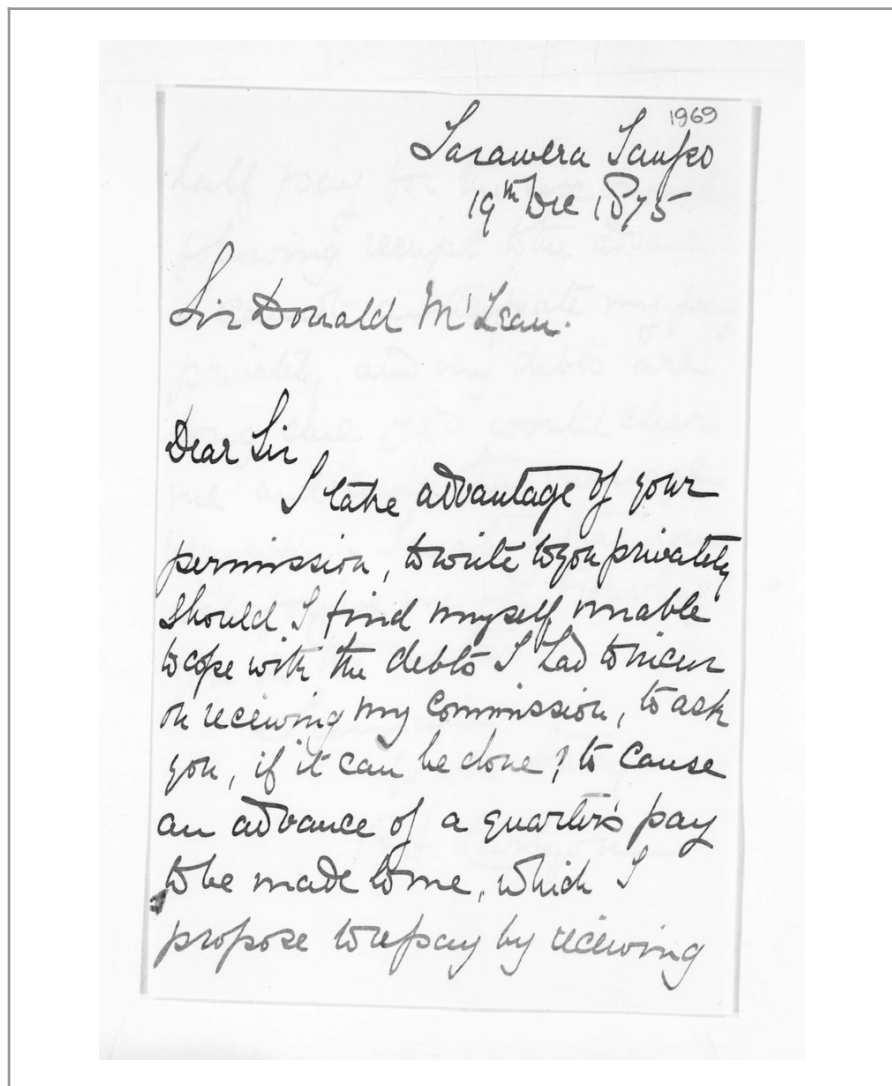 1969
Tarawera Taupo
19th Dec 1875
Sir Donald McLean.
Dear Sir
I take advantage of your
permission, to write to you privately
should I find myself unable
to cope with the debts I had to incur
on receiving my Commission, to ask
you, if it can be done, to cause
an advance of a quarter's pay
to be made to me, which I
propose to repay by receiving